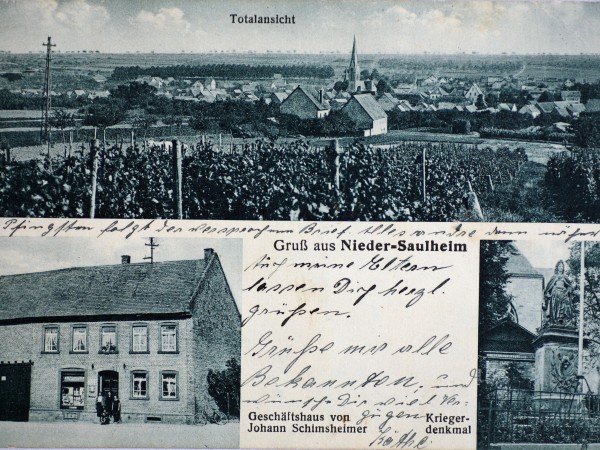 Totalansicht
Pfingsten folgt der versprochene Brief. Alles andre dann näher
Gruß aus Nieder-Saulheim
Auch meine Eltern
lassen Dich herzl.
grüßen.
Grüße mir alle
Bekannten und
wünsche Dir viel Ver-
gügen
Käthe
Geschäftshaus von
Johann Schimsheimer
Krieger-
denkmal